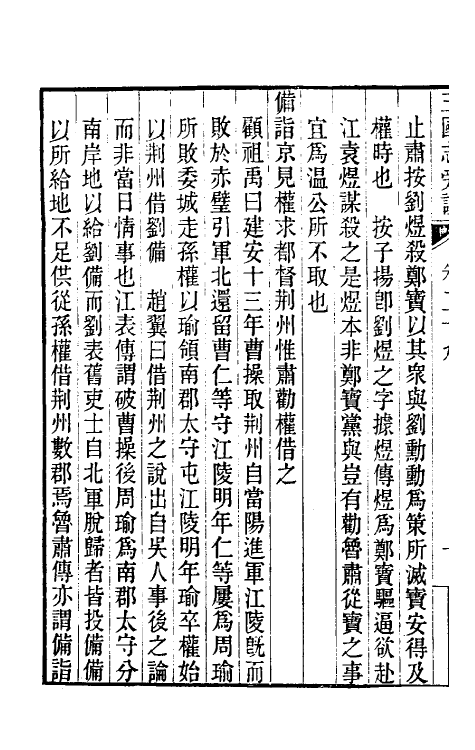 止肅按劉煜殺鄭寶以其衆與劉勳勳爲策所滅寶安得及
權時也　按子揚卽劉煜之字據煜傳煜爲鄭寶驅逼欲赴
江袁煜謀殺之是煜本非鄭寶黨與豈有勸魯肅從寶之事
宜爲温公所不取也
備詣京見權求都督荆州惟肅勸權借之
顧祖禹曰建安十三年曹操取荆州自當陽進軍江陵旣而
敗於赤壁引軍北還留曹仁等守江陵明年仁等屢爲周瑜
所敗委城走孫權以瑜領南郡太守屯江陵明年瑜卒權始
以荆州借劉備　趙翼曰借荆州之說出自吳人事後之論
而非當日情事也江表傳謂破曹操後周瑜爲南郡太守分
南岸地以給劉備而劉表舊吏士自北軍脫歸者皆投備備
以所給地不足供從孫權借荆州數郡焉魯肅傳亦謂備詣